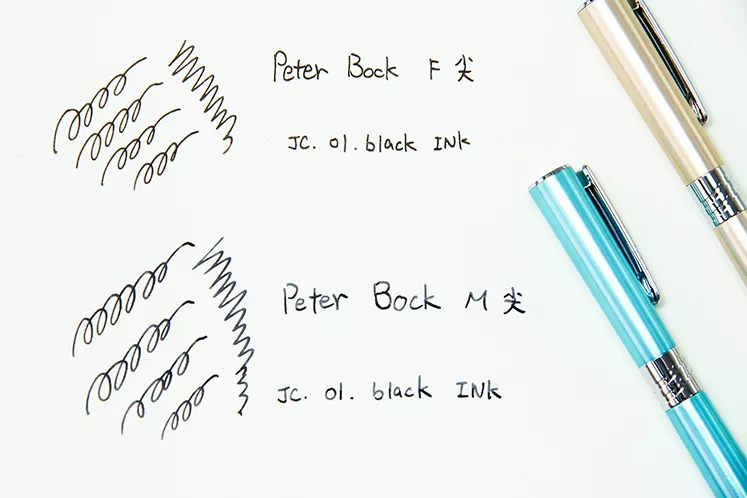 Peter Bock F 尖
JC. 01. black INK
Peter Bock M 尖
JC. 01. black INK